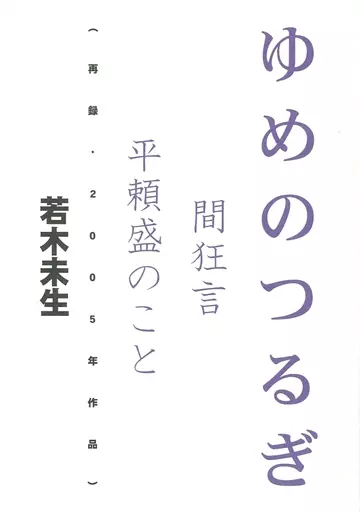 ゆめのつるぎ
間狂言
平頼盛のこと
(再録・2005年作品)
若木未生